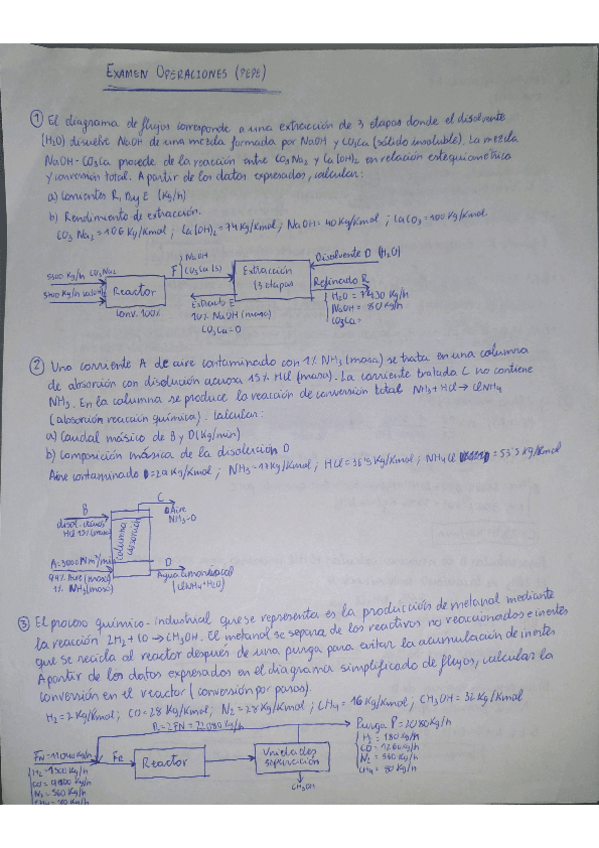 EXAMEN OPERACIONES (PEPE)
① El diagrama de flujos corresponde a una extracción de 3 etapas donde el disolvente
(H2O) disuelve NaOH de una mezcla formada por NaOH y CO3Ca (sólido insoluble). La mezcla
NaOH-CO3Ca procede de la reacción entre CO3Na2 y Ca(OH)2 en relación estequiométrica
y conversión total. A partir de los datos expresados, calcular:
a) Corrientes R, D y E (Kg/h)
b) Rendimiento de extracción.
CO3Na2 = 106 Kg/Kmol; Ca(OH)2 = 74 Kg/Kmol; NaOH = 40 Kg/Kmol; CaCO3 = 100 Kg/Kmol.
5300 Kg/h CO3Na2
Reactor
Conv. 100%
F
NaOH
CO3Ca (s)
Extracción
(3 etapas)
Disolvente D (H2O)
Refinado R
H2O = Kg/h
NaOH = 80 Kg/h
CO3Ca =
Extracto E
10% NaOH (masa)
CO3Ca = 0
② Una corriente A de aire contaminado con 1% NH3 (masa) se trata en una columna
de absorción con disolución acuosa 15% HCl (masa). La corriente tratada C no contiene
NH3. En la columna se produce la reacción de conversión total NH3 + HCl → ClNH4
(absorción reacción química). Calcular:
a) Caudal másico de B y D (Kg/min)
b) Composición másica de la disolución D
Aire contaminado = 29 Kg/Kmol; NH3 = 17 Kg/Kmol; HCl = 36'5 Kg/Kmol; NH4Cl = 53'5 Kg/Kmol
B
disol. acuosa
HCl 15% (masa)
columna absorción
C
Aire
NH3 = 0
A = 3000 Nm³/min
99% Aire (masa)
1% NH3 (masa)
D
Agua amoniacal
(ClNH4 + H2O)
③ El proceso químico-industrial que se representa es la producción de metanol mediante
la reacción 2H2 + CO → CH3OH. El metanol se separa de los reactivos no reaccionados e inertes
que se recicla al reactor después de una purga para evitar la acumulación de inertes
A partir de los datos expresados en el diagrama simplificado de flujos, calcular la
conversión en el reactor (conversión por paso).
H2 = 2 Kg/Kmol; CO = 28 Kg/Kmol; N2 = 28 Kg/Kmol; CH4 = 16 Kg/Kmol; CH3OH = 32 Kg/Kmol
R = 2FN = 22080 Kg/h
Purga P = 2080 Kg/h
H2 = 180 Kg/h
CO = 1260 Kg/h
N2 = 560 Kg/h
CH4 = 80 Kg/h
FN = 11040 Kg/h
FR
Reactor
Unidades
separación
CH3OH
H2 = 1300 Kg/h
CO = Kg/h
N2 = 560 Kg/h
CH4 = 80 Kg/h